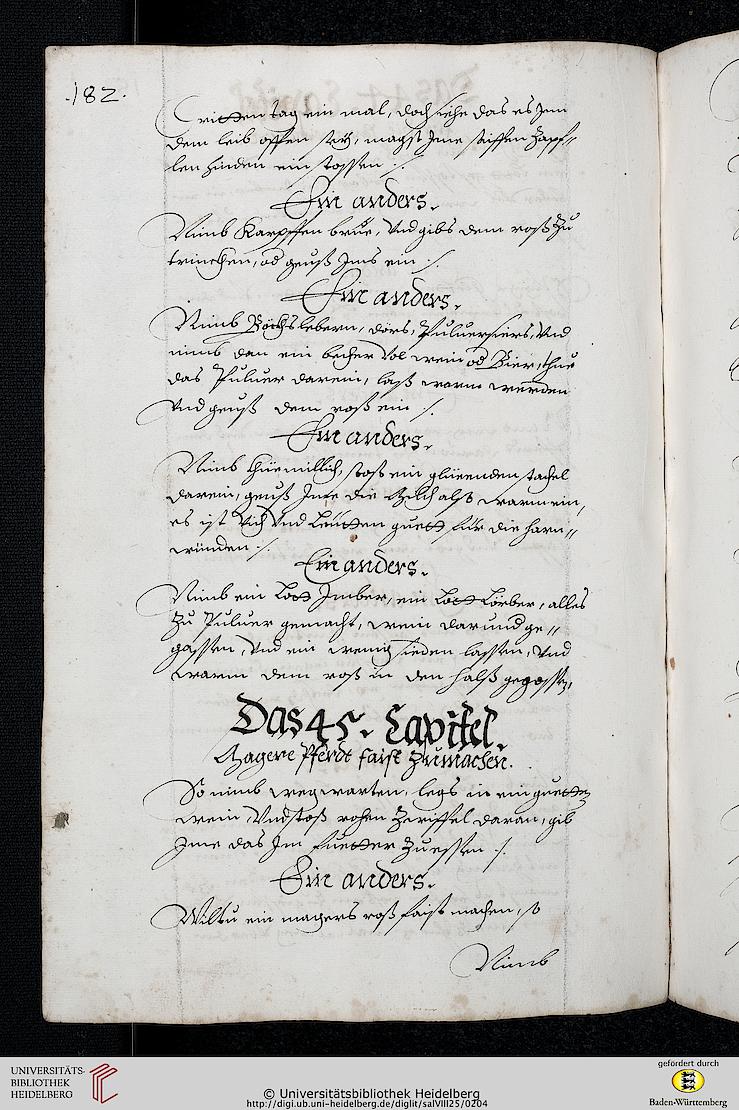 .182.
dritten tag ein mal, doch siche das es Jm
dem leib offen sey, magst Jme saiffen Zäpf„
len hinden ein stossen ./.
Ein anders.
Nimb Karpffen brüe, Vnd gibs dem roß Zu
trinckhen, od geuß Jms ein ./.
Ein anders.
Nimb Böckhs lebern, dörs, Puluersiers, Vnd
nimb dan ein becher Vol wein od Bier, thue
das Puluer darein, laß warm werden
Vnd geuß dem roß ein ./.
Ein anders.
Nimb Küemillich, stoß ein glüeenden stachel
darein, geuß Jme die Milch alß warm ein,
es ist Vich Vnd Leütten guett für die harn„
wünden ./.
Ein anders.
Nimb ein Lott Jmber, ein Lott Lörber, alles
Zu Puluer gemacht, wein darund ge„
gossen, Vnd ein wenig sieden lassen, Vnd
warm dem roß in den halß gegossen,
Das 45. Capitel.
Magere Pferdt faist Zumachen.
So nimb wegwarten, legs in ein guetten
wein Vnd stoß rohen Zwiffel daran, gib
Jme das Jm fuetter Zu essen ./.
Ein anders.
Wiltu ein magers roß faist machen, so
Nimb
UNIVERSITÄTS-
BIBLIOTHEK
HEIDELBERG
© Universitätsbibliothek Heidelberg
http://digi.ub.uni-heidelberg.de/diglit/salVIII25/0204
gefördert durch
Baden-Württemberg